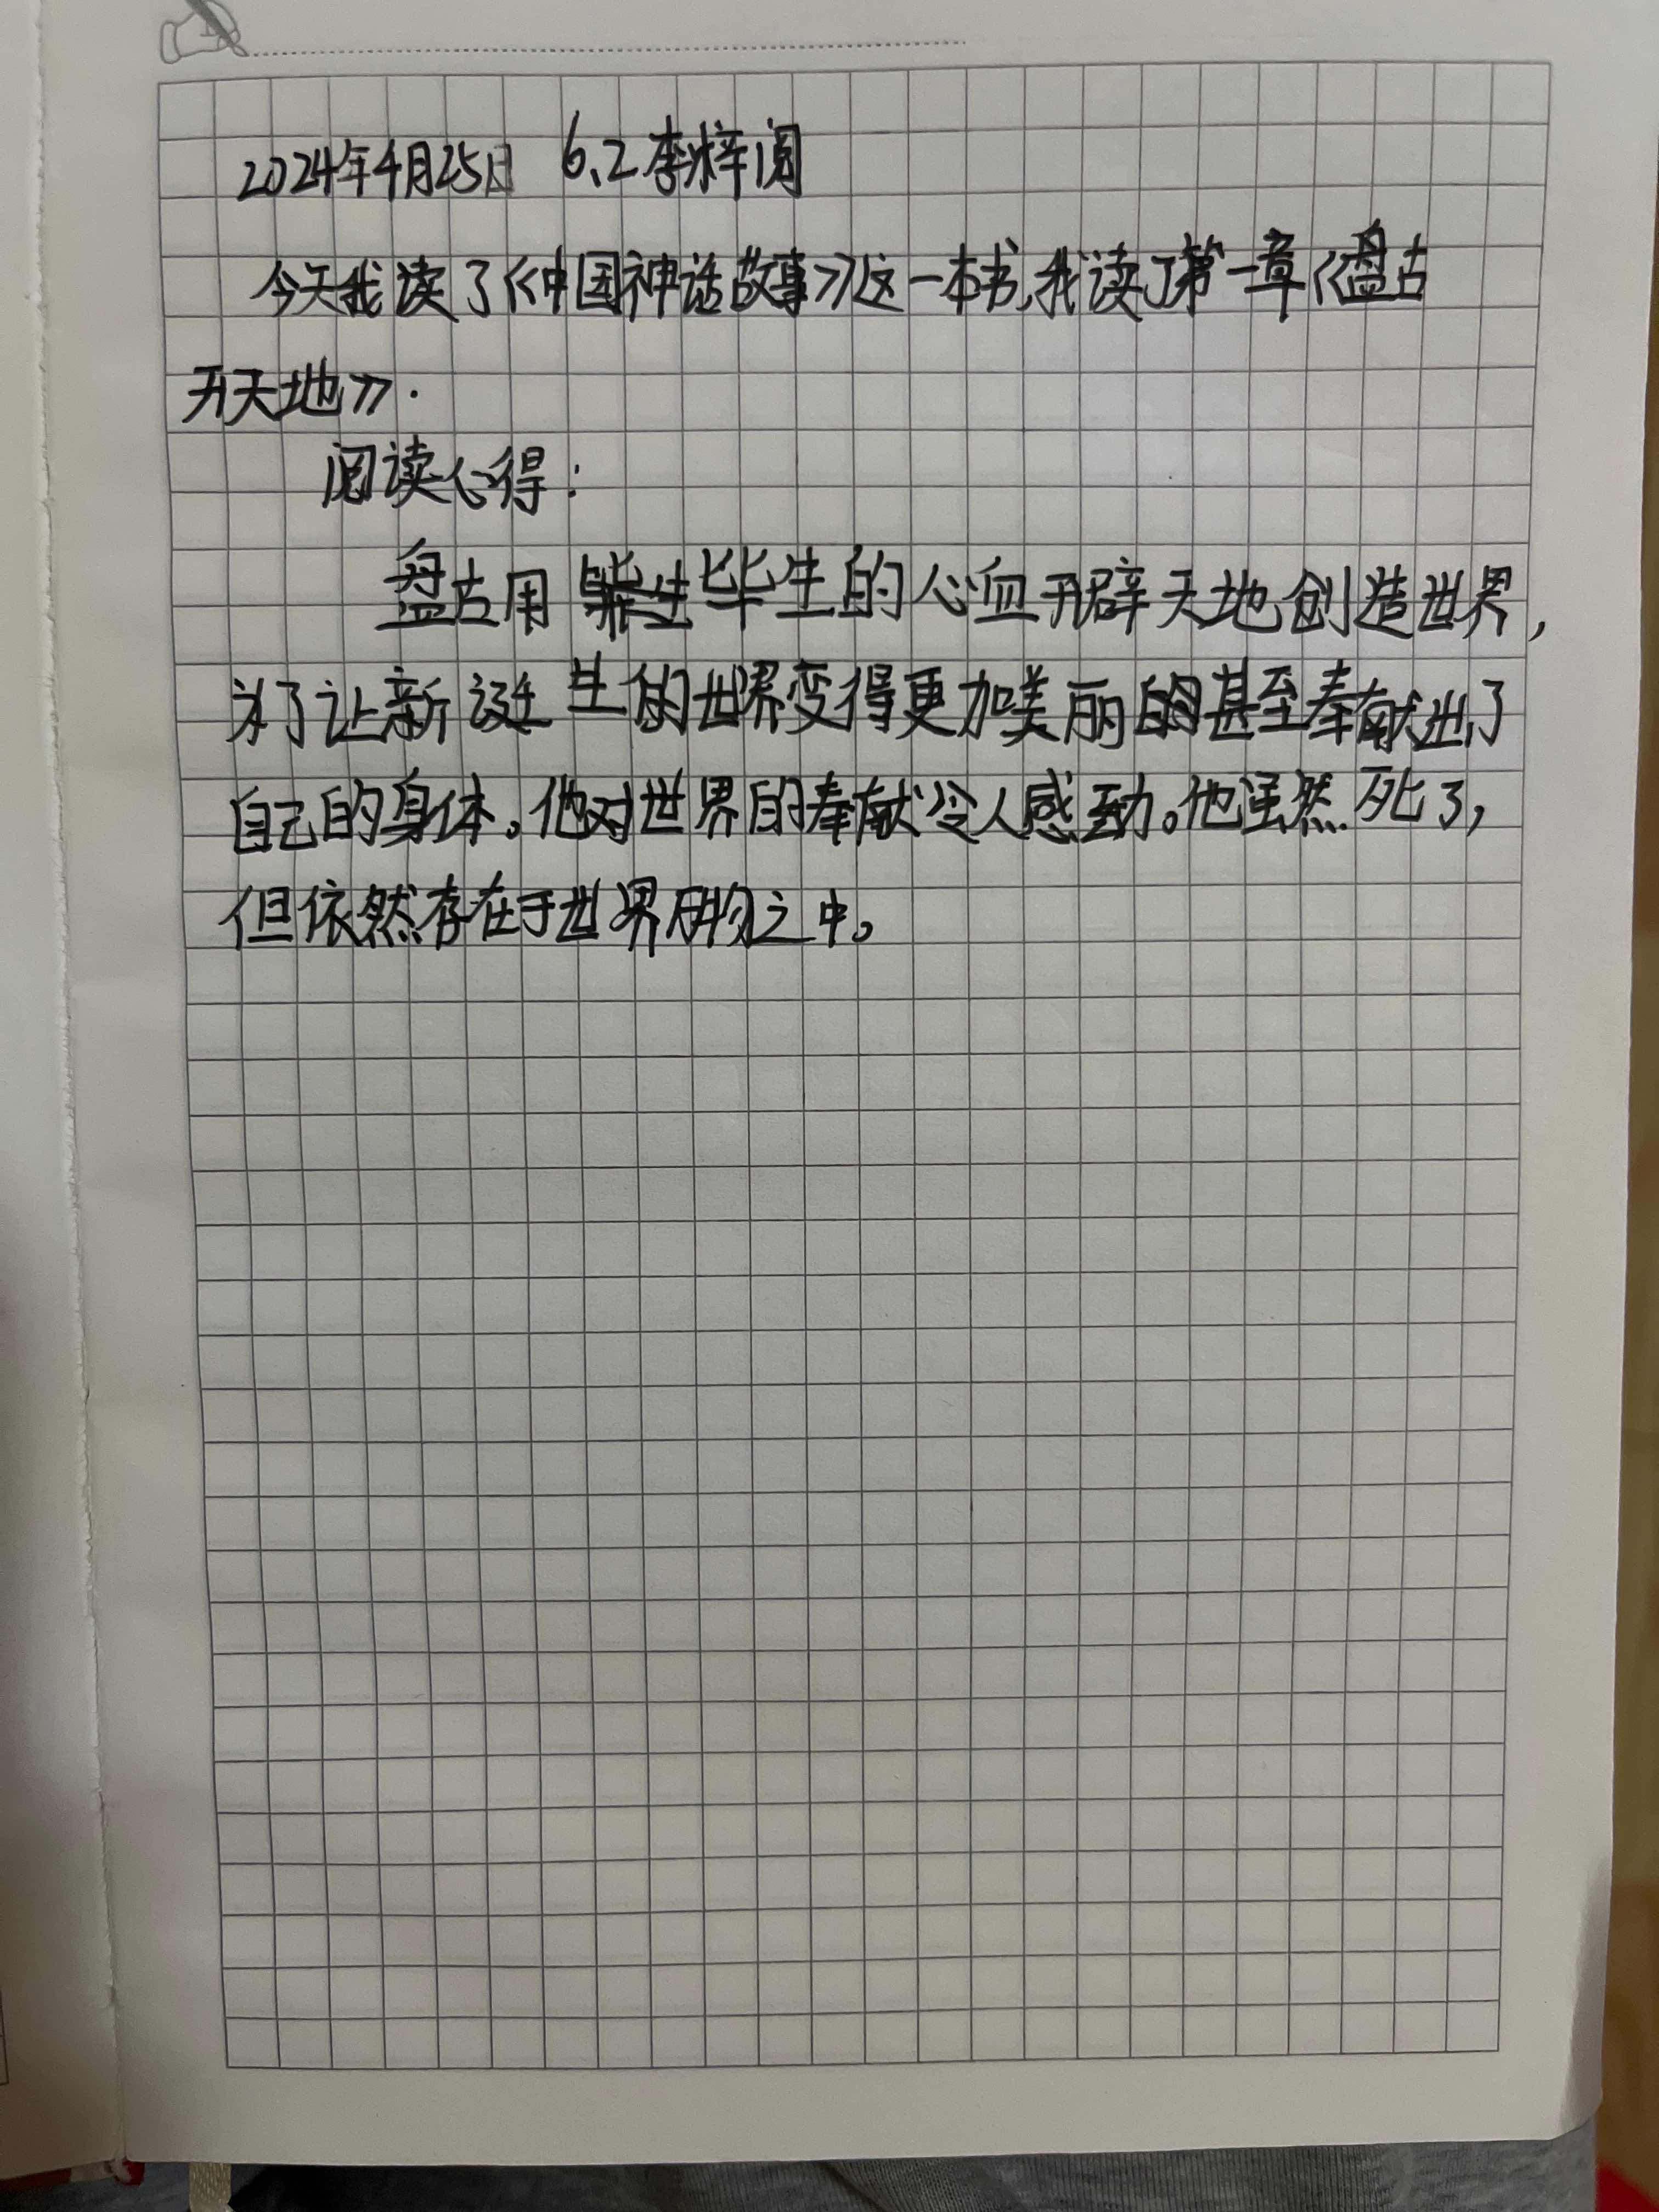 2024年4月25日 6.2李梓阅
今天我读了《中国神话故事》这一本书,我读了第一章《盘古
开天地》.
阅读心得:
盘古用毕生的心血开辟天地创造世界,
为了让新诞生的世界变得更加美丽甚至奉献出了
自己的身体。他对世界的奉献令人感动。他虽然死了,
但依然存在于世界万物之中。